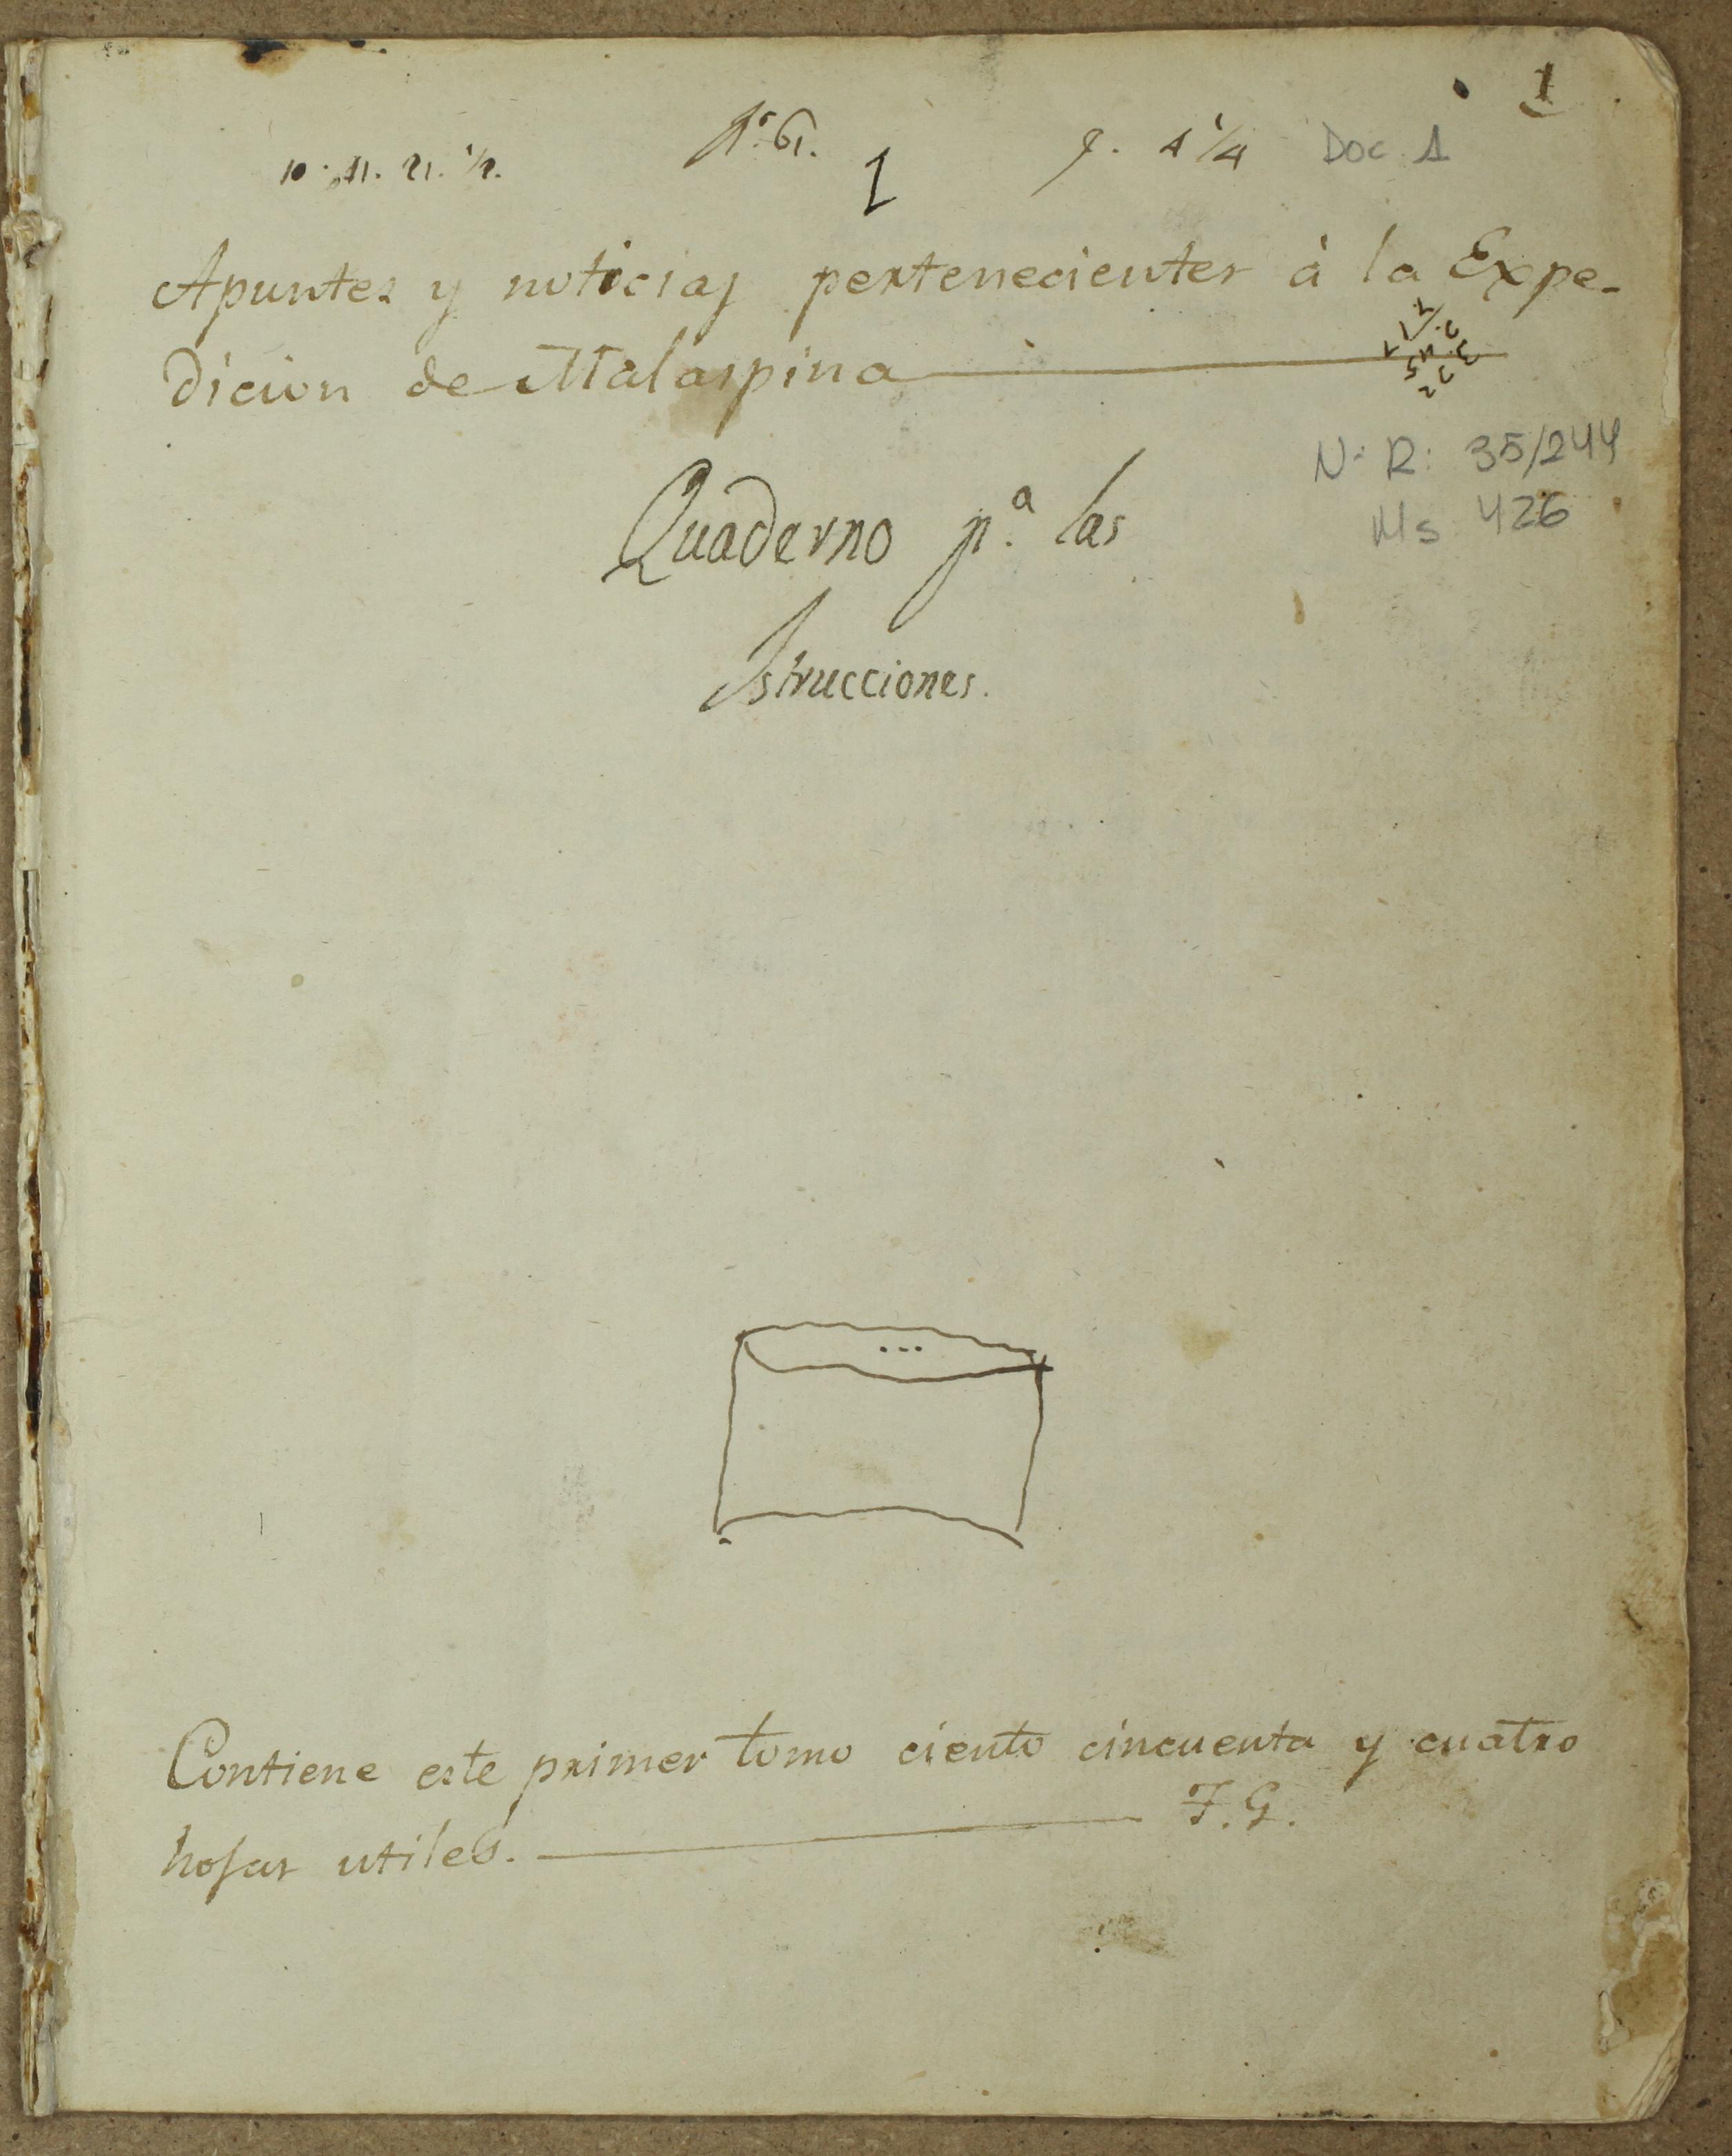 1
10. 11. 21. 1/2.
1
4 1/4
Doc. 1
Apuntes y noticias pertenecientes à la Expe-
dicion de Malaspina
N: R: 35/244
Ms 426
Quaderno p.ª las
Istrucciones.
Contiene este primer tomo ciento cincuenta y cuatro
hojas utiles. F.G.